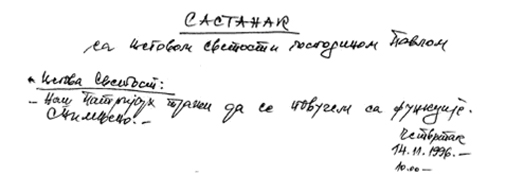 САСТАНАК
са његовом светости господином Павлом
• Његова Светост:
- Наш Патријарх тражи да се повучем са функције.
Стимцено.-
Четвртак
14.11.1996.-
10.00-